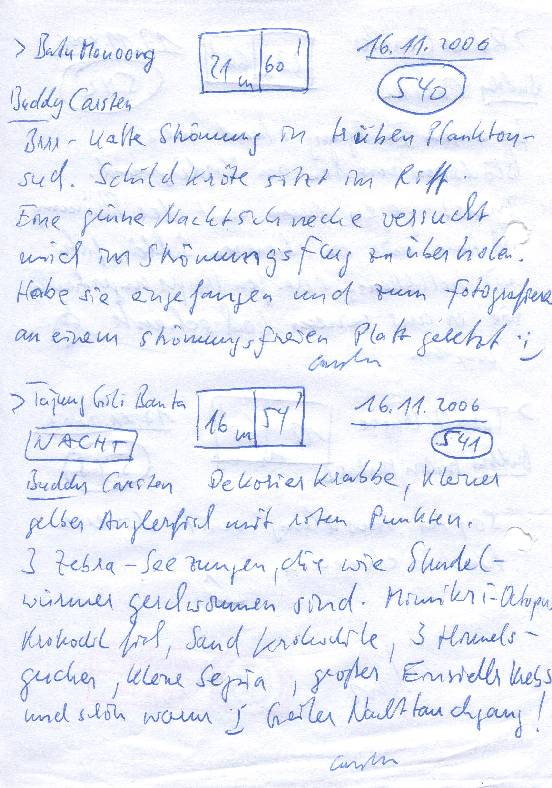 > Batu Monoong 21m 60' 16.11.2006
540
Buddy Carsten
Brrr - Kalte Strömung in trüben Plankton-
sud. Schildkröte sitzt im Riff.
Eine grüne Nacktschnecke versucht
mich im Strömungsflug zu überholen.
Habe sie angefangen und zum fotografieren
an einem strömungsfreien Platz gesetzt :)
Carsten
> Tajung Gili Banta 16m 54' 16.11.2006
NACHT 541
Buddy Carsten Dekorierkrabbe, kleiner
gelber Anglerfisch mit roten Punkten.
3 Zebra-Seezungen, die wie Strudel-
würmer geschwommen sind. Mimikri-Octopus,
Krokodilfisch, Sandkrokodile, 3 Himmels-
gucker, kleine Sepia, großer Einsiedlerkrebs
und schön warm :) Geiler Nachttauchgang!
Carsten